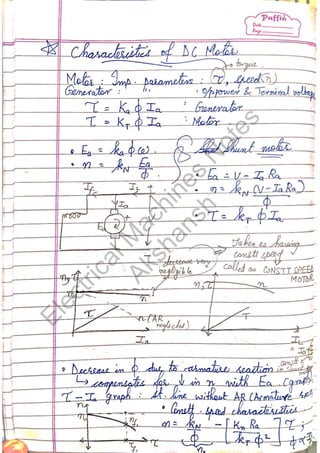 Puffin
Date
Page
Characteristics of DC Motor
→ torque
Motor : Imp. parameters : (τ, speed(n)
Generator : " : o/p power & Terminal voltage
τ = Ka ϕ Ia : Generator
τ = KT ϕ Ia : Motor
• Ea = ka ϕ(ω)
Shunt motor
• n = kN Ea/ϕ
• Ea = V - Ia Ra
• n = kN (V - Ia Ra)/ϕ
• τ = kT ϕ Ia
If
Ia
Ea
+
-
Taken as having
constt speed
called as CONSTT SPEED
MOTOR
decrease very
negligible
n, τ
n
n
τ
n (AR
neglected)
Ia
n, τ
n
τ
• Decrease in ϕ due to armature reaction
→ compensates for ↓ in n with Ea (graph
τ - Ia graph : st. line without AR (Armature
• Constt - speed characteristics
n = kN - [Kn Ra / kT ϕ²] τ ;
ϕ
n
Electrical Machines Notes
Akshansh